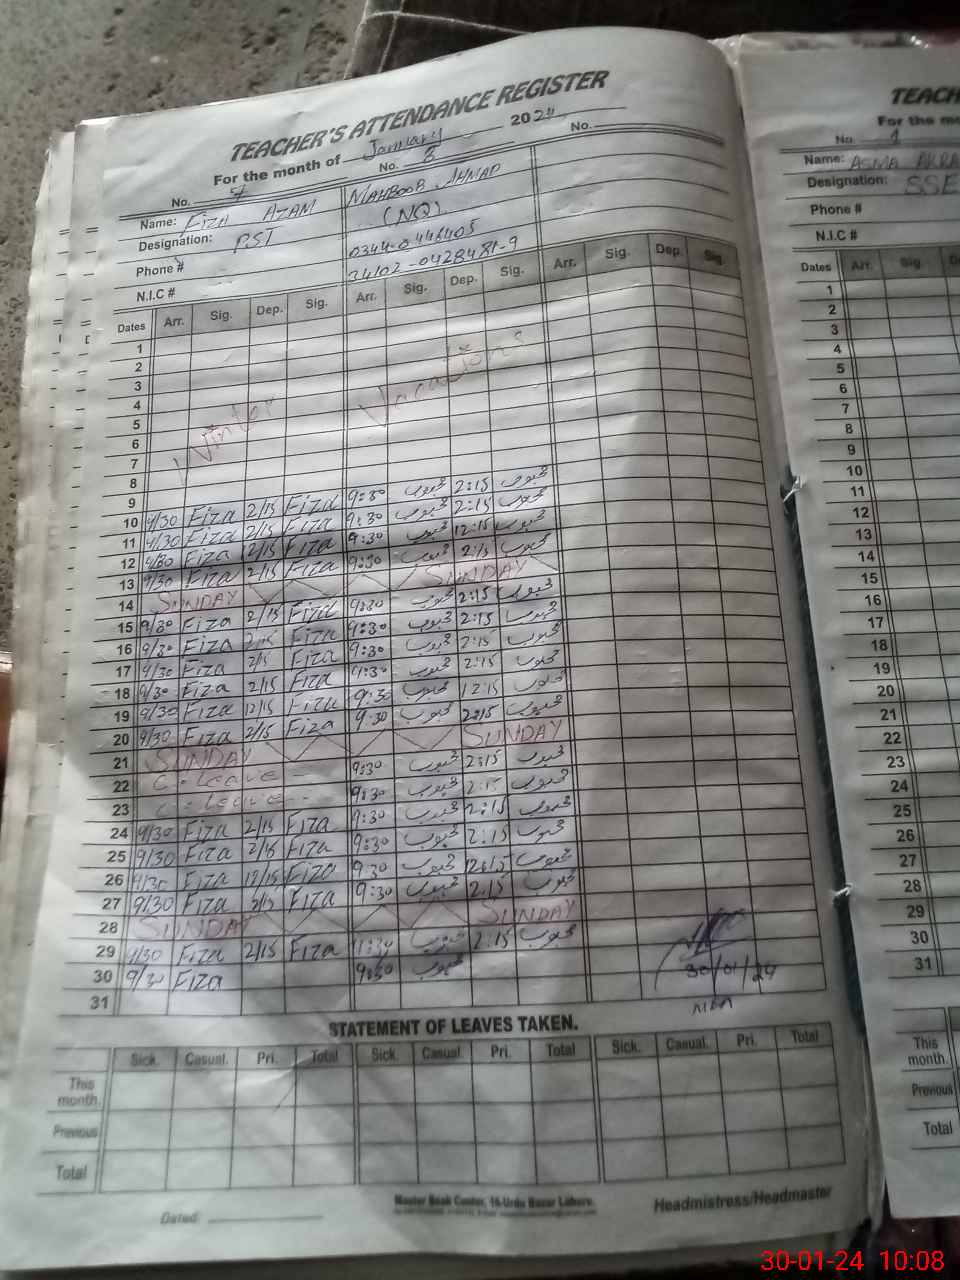 TEACHER'S ATTENDANCE REGISTER
For the month of January 2024
No. 7 No. 8 No.
Name: FIZA AZAM MAHBOOB AHMAD
Designation: PST (NQ)
Phone # 0344-0446405
N.I.C # 34102-0428481-9
Dates Arr. Sig. Dep. Sig. Arr. Sig. Dep. Sig. Arr. Sig. Dep. Sig.
1
2
3
4
5
6
7
8
Winter Vacations
9
10 9/30 Fiza 2/15 Fiza 9:30 محبوب 2:15 محبوب
11 9/30 Fiza 2/15 Fiza 9:30 محبوب 2:15 محبوب
12 9/30 Fiza 12/15 Fiza 9:30 محبوب 12:15 محبوب
13 9/30 Fiza 2/15 Fiza 9:30 محبوب 2:15 محبوب
14 SUNDAY SUNDAY
15 9/30 Fiza 2/15 Fiza 9:30 محبوب 2:15 محبوب
16 9/30 Fiza 2/15 Fiza 9:30 محبوب 2:15 محبوب
17 9/30 Fiza 2/15 Fiza 9:30 محبوب 2:15 محبوب
18 9/30 Fiza 2/15 Fiza 9:30 محبوب 2:15 محبوب
19 9/30 Fiza 12/15 Fiza 9:30 محبوب 12:15 محبوب
20 9/30 Fiza 2/15 Fiza 9:30 محبوب 2:15 محبوب
21 SUNDAY SUNDAY
22 C-Leave 9:30 محبوب 2:15 محبوب
23 C-Leave 9:30 محبوب 2:15 محبوب
24 9/30 Fiza 2/15 Fiza 9:30 محبوب 2:15 محبوب
25 9/30 Fiza 2/15 Fiza 9:30 محبوب 2:15 محبوب
26 9/30 Fiza 12/15 Fiza 9:30 محبوب 12:15 محبوب
27 9/30 Fiza 2/15 Fiza 9:30 محبوب 2:15 محبوب
28 SUNDAY SUNDAY
29 9/30 Fiza 2/15 Fiza محبوب 2:15 محبوب
30 9/30 Fiza 9:30 محبوب 30/01/24
31 MEA
STATEMENT OF LEAVES TAKEN.
Sick. Casual. Pri. Total Sick. Casual. Pri. Total Sick. Casual. Pri. Total
This month.
Previous
Total
Master Book Center, 16-Urdu Bazar Lahore.
Dated Headmistress/Headmaster
TEACH
For the mo
No. 1
Name: ASMA AKRA
Designation: SSE
Phone #
N.I.C #
Dates Arr. Sig. D
1
2
3
4
5
6
7
8
9
10
11
12
13
14
15
16
17
18
19
20
21
22
23
24
25
26
27
28
29
30
31
This month.
Previous
Total
30-01-24 10:08